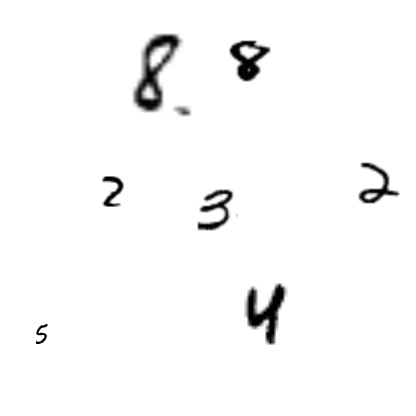 8. 8
2 3 2
5 4